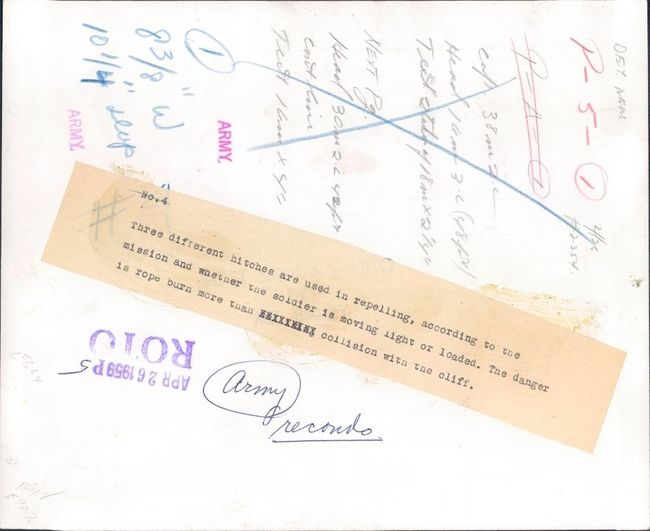 DET. NEWS
P-5-1
4/26
#2354
P-A-
cap. 38m 2c
Head 1 Lm 3-c (48pt)
NEXT Pg.
Head 30m 2c 42pt
cont line
Text 1 Lm x
1
8 3/8" W
10 1/4" deep
ARMY.
ARMY.
#
No.4
Three different hitches are used in repelling, according to the
mission and whether the soldier is moving light or loaded. The danger
is rope burn more than collision with the cliff.
ROTO
APR 26 1959 P5
Army
recondo